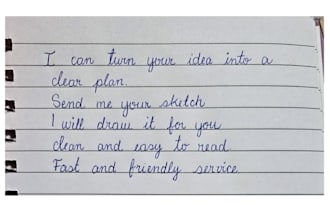 I can turn your idea into a
clear plan.
Send me your sketch
I will draw it for you
clean and easy to read
Fast and friendly service